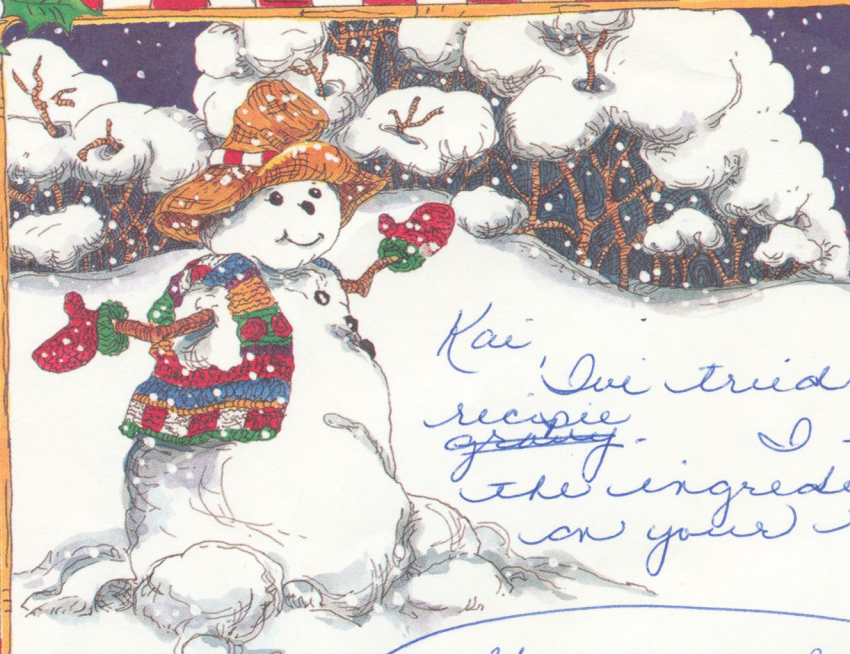 Kai,
I've tried
recipie
gravy. I
the ingrede
on your